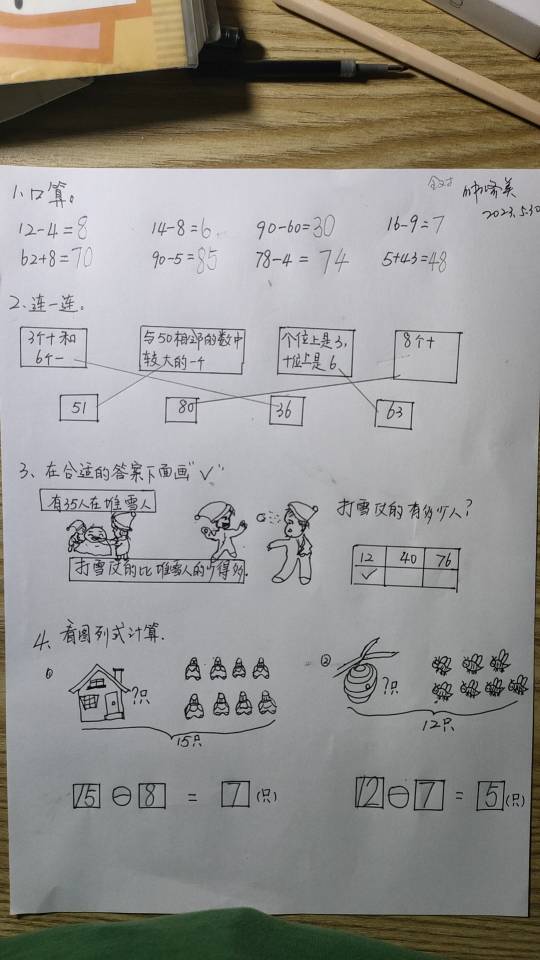 1、口算。
2023.5.30
12-4=8 14-8=6 90-60=30 16-9=7
62+8=70 90-5=85 78-4=74 5+43=48
2、连一连。
3个十和
6个一
与50相邻的数中
较大的一个
个位上是3,
十位上是6
8个十
51 80 36 63
3、在合适的答案下面画"✓"
有35人在堆雪人
打雪仗的比堆雪人的少得多.
打雪仗的有多少人?
12 40 76
✓
4、看图列式计算.
① ?只
15只
15 - 8 = 7 (只)
② ?只
12只
12 - 7 = 5 (只)